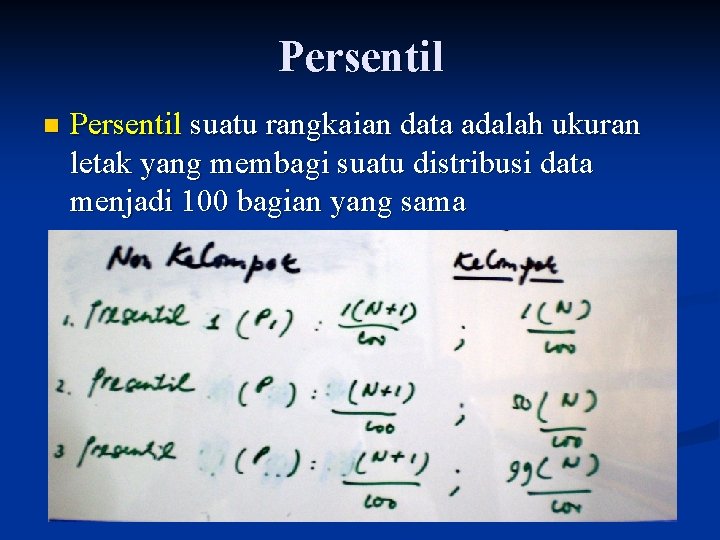 Persentil
Persentil suatu rangkaian data adalah ukuran
letak yang membagi suatu distribusi data
menjadi 100 bagian yang sama
Non Kelompok Kelompok
1. Presentil 1 (P1) : 1(N+1)/100 ; 1(N)/100
2. Presentil (P ) : (N+1)/100 ; 50(N)/100
3 Presentil (P ) : (N+1)/100 ; 99(N)/100